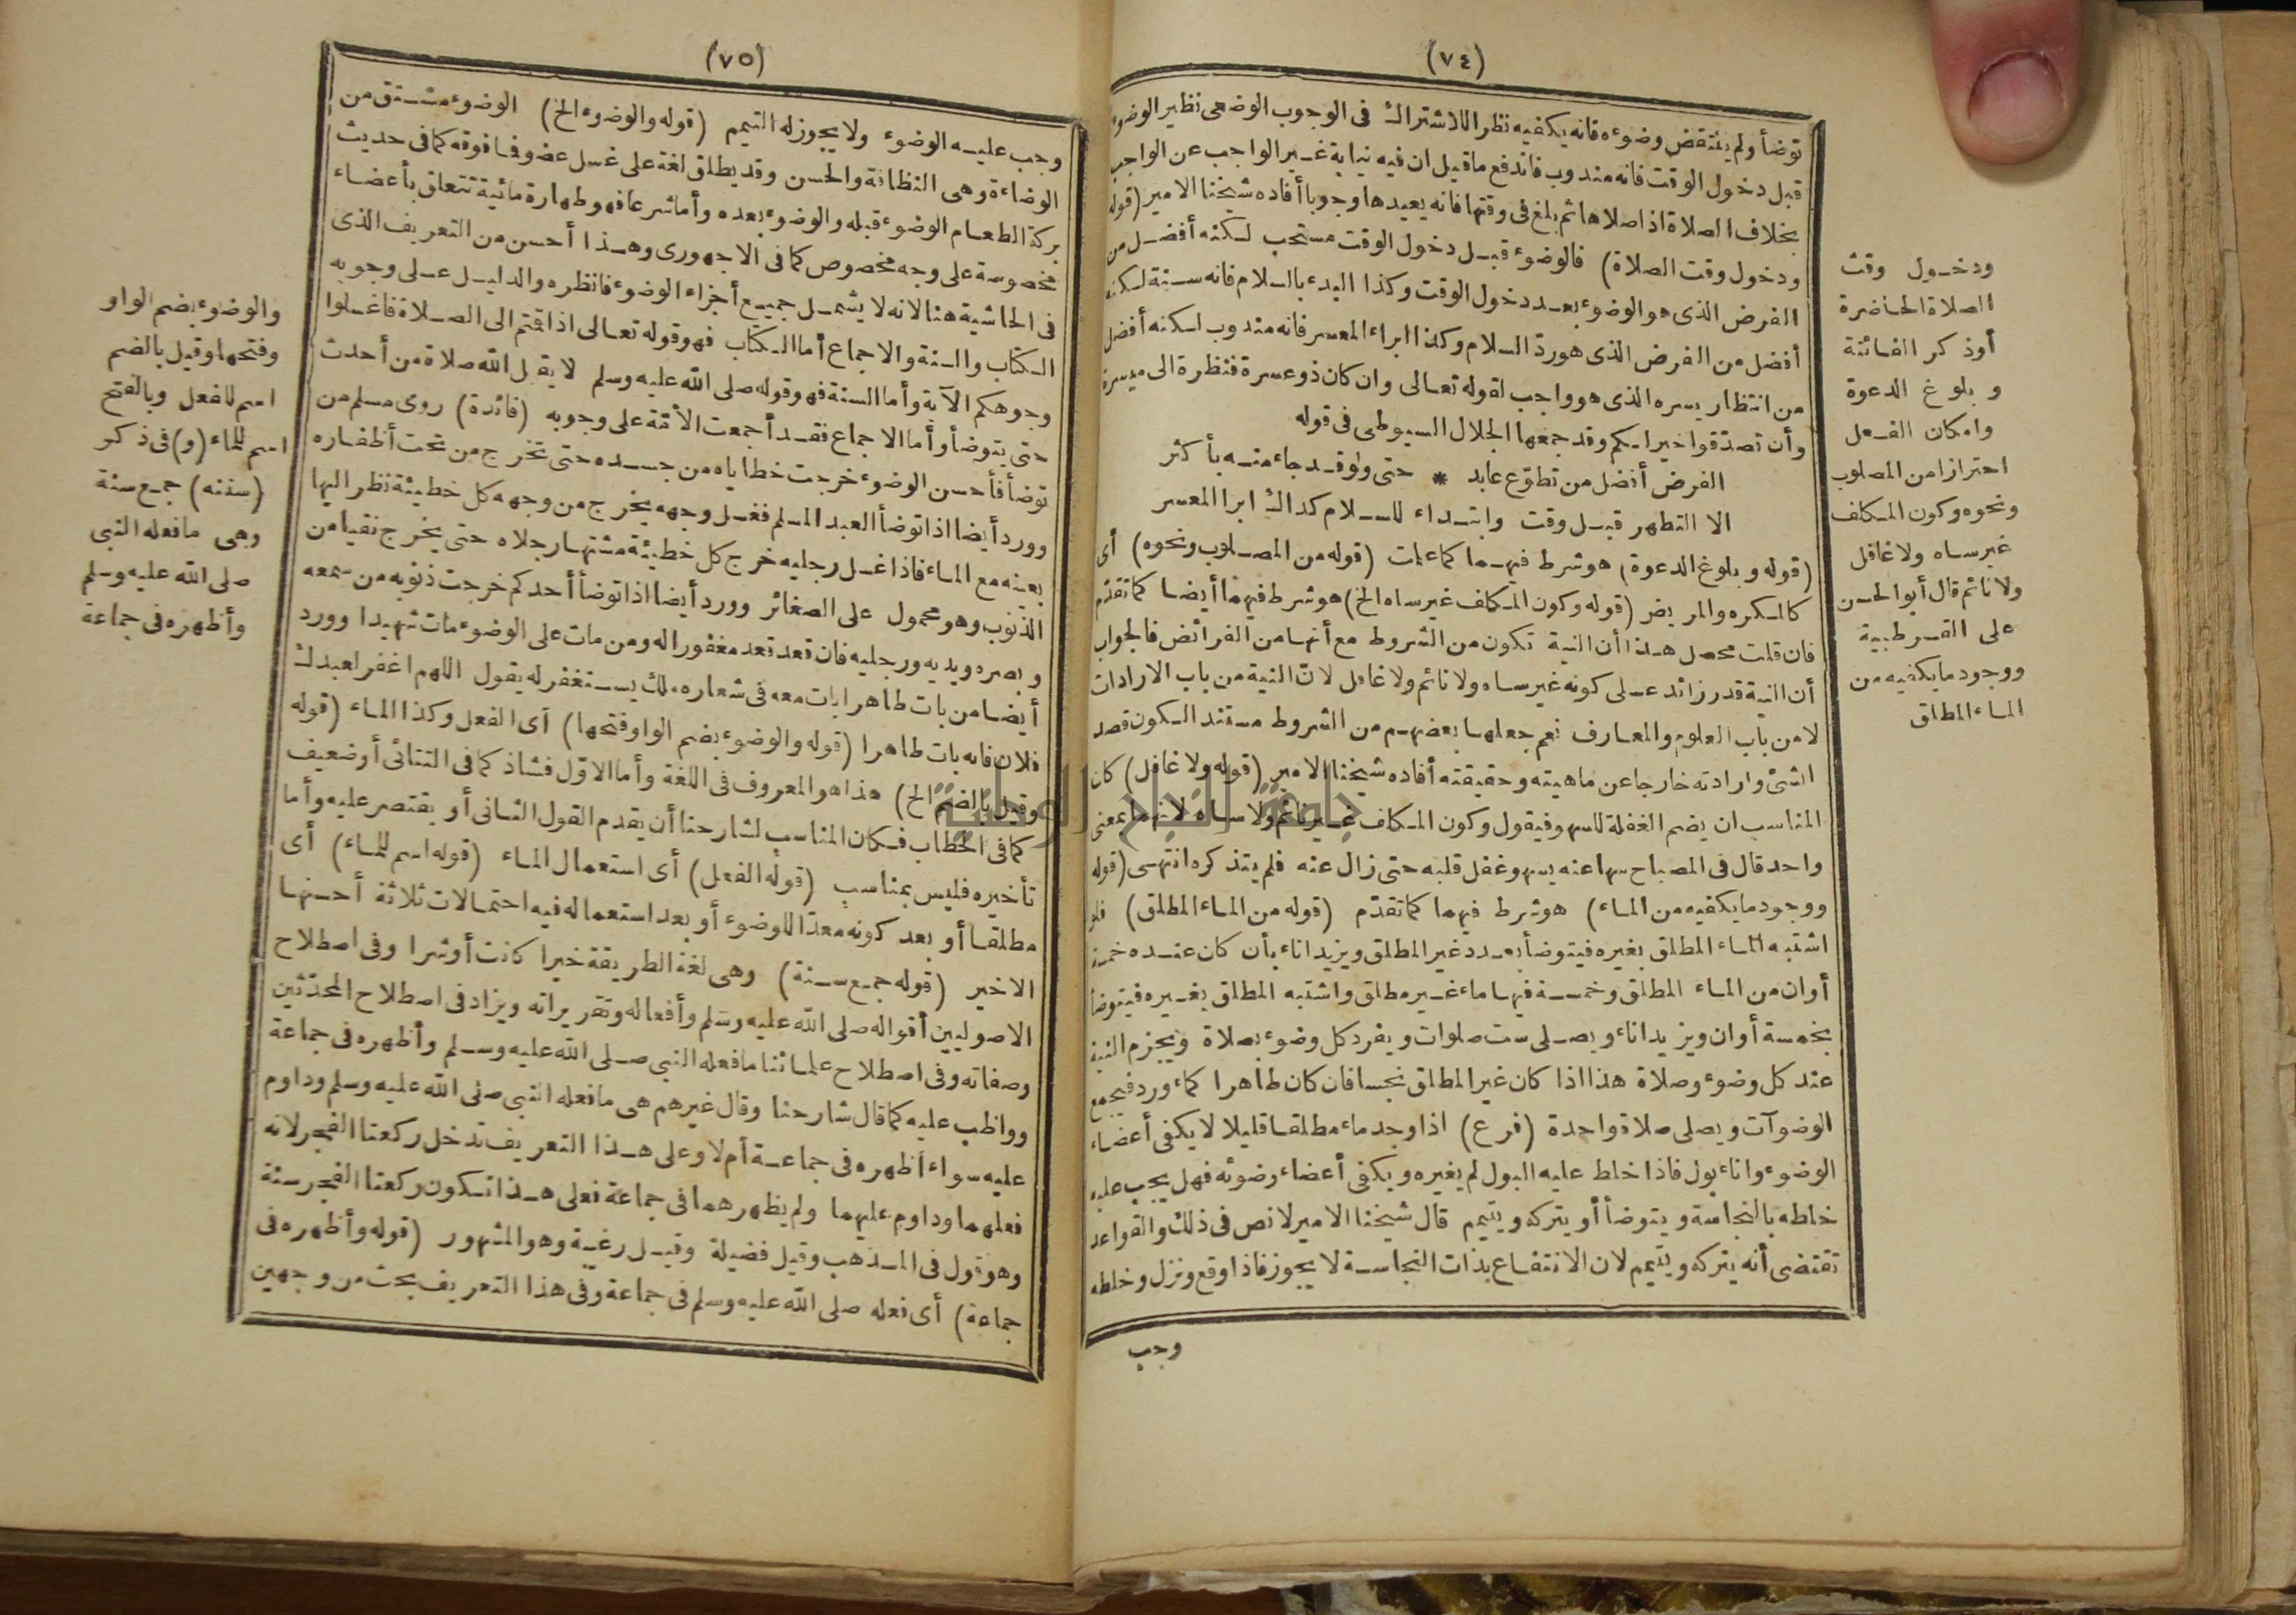 (٧٤)
توضأ ولم ينتقض وضوءه فانه يكفيه نظر اللاشتراك فى الوجوب الوضعى نظير الوضوء
قبل دخول الوقت فانه مندوب فاندفع ما قيل ان فيه نيابة غير الواجب عن الواجب
بخلاف الصلاة اذا صلاها ثم بلغ فى وقتها فانه يعيدها وجوبا أفاده شيخنا الامير (قوله
ودخول وقت الصلاة) فالوضوء قبل دخول الوقت مستحب لكنه أفضل من
الفرض الذى هو الوضوء بعد دخول الوقت وكذا البدء بالسلام فانه سنة لكنه
أفضل من الفرض الذى هو ردّ السلام وكذا ابراء المعسر فانه مندوب لكنه أفضل
من انتظار يسره الذى هو واجب لقوله تعالى وان كان ذو عسرة فنظرة الى ميسرة
وأن تصدّقوا خير لكم وقد جمعها الجلال السيوطى فى قوله
الفرض أفضل من تطوّع عابد * حتى ولو قد جاء منه بأكثر
الا التطهر قبل وقت وابتداء للسلام كذاك ابرا المعسر
(قوله وبلوغ الدعوة) هو شرط فيهما كما علمت (قوله من المصلوب ونحوه) أى
كالمكره والمريض (قوله وكون المكلف غير ساه الخ) هو شرط فيهما أيضا كما تقدّم
فان قلت محصل هذا أن النية تكون من الشروط مع أنها من الفرائض فالجواب
أن النية قدر زائد على كونه غير ساه ولا نائم ولا غافل لانّ النية من باب الارادات
لا من باب العلوم والمعارف نعم جعلها بعضهم من الشروط مستند الكون قصد
الشئ وارادته خارجا عن ماهيته وحقيقته أفاده شيخنا الامير (قوله ولا غافل) كان
المناسب ان يضم الغفلة للسهو فيقول وكون المكلف غير نائم ولا ساه لانهما بمعنى
واحد قال فى المصباح سها عنه يسهو غفل قلبه حتى زال عنه فلم يتذكره انتهى (قوله
ووجود ما يكفيه من الماء) هو شرط فيهما كما تقدّم (قوله من الماء المطلق) فلو
اشتبه الماء المطلق بغيره فيتوضأ بعدد غير المطلق ويزيد اناء بأن كان عنده خمسة
أوان من الماء المطلق وخمسة فيها ماء غير مطلق واشتبه المطلق بغيره فيتوضأ
بخمسة أوان ويزيد اناء ويصلى ست صلوات ويفرد كل وضوء بصلاة ويجزم النية
عند كل وضوء وصلاة هذا اذا كان غير المطلق نجسا فان كان طاهرا كماء ورد فيجمع
الوضوآت ويصلى صلاة واحدة (فرع) اذا وجد ماء مطلقا قليلا لا يكفى أعضاء
الوضوء واناء بول فاذا خلط عليه البول لم يغيره ويكفى أعضاء وضوئه فهل يجب عليه
خلطه بالنجاسة ويتوضأ أو يتركه ويتيمم قال شيخنا الامير لا نص فى ذلك والقواعد
تقتضى أنه يتركه ويتيمم لان الانتفاع بذات النجاسة لا يجوز فاذا وقع ونزل وخلطه
وجب
ودخول وقت
الصلاة الحاضرة
أو ذكر الفائتة
وبلوغ الدعوة
وامكان الفعل
احترازا من المصلوب
ونحوه وكون المكلف
غير ساه ولا غافل
ولا نائم قال أبو الحسن
على القرطبية
ووجود ما يكفيه من
الماء المطلق
(٧٥)
وجب عليه الوضوء ولا يجوز له التيمم (قوله والوضوء الخ) الوضوء مشتق من
الوضاءة وهى النظافة والحسن وقد يطلق لغة على غسل عضو فما فوقه كما فى حديث
بركة الطعام الوضوء قبله والوضوء بعده وأما شرعا فهو طهارة مائية تتعلق بأعضاء
مخصوصة على وجه مخصوص كما فى الاجهورى وهذا أحسن من التعريف الذى
فى الحاشية هنا لانه لا يشمل جميع أجزاء الوضوء فانظره والدليل على وجوبه
الكتاب والسنة والاجماع أما الكتاب فهو قوله تعالى اذا قمتم الى الصلاة فاغسلوا
وجوهكم الآية وأما السنة فهو قوله صلى الله عليه وسلم لا يقبل الله صلاة من أحدث
حتى يتوضأ وأما الاجماع فقد أجمعت الأمّة على وجوبه (فائدة) روى مسلم من
توضأ فأحسن الوضوء خرجت خطاياه من جسده حتى تخرج من تحت أظفاره
وورد أيضا اذا توضأ العبد المسلم فغسل وجهه يخرج من وجهه كل خطيئة نظر اليها
بعينه مع الماء فاذا غسل رجليه خرج كل خطيئة مشتها رجلاه حتى يخرج نقيا من
الذنوب وهو محمول على الصغائر وورد أيضا اذا توضأ أحدكم خرجت ذنوبه من سمعه
وبصره ويديه ورجليه فان قعد قعد مغفورا له ومن مات على الوضوء مات شهيدا وورد
أيضا من بات طاهرا بات معه فى شعاره ملك يستغفر له يقول اللهم اغفر لعبدك
فلان فانه بات طاهرا (قوله والوضوء بضم الواو وفتحها) أى الفعل وكذا الماء (قوله
وقيل بالضم الخ) هذا هو المعروف فى اللغة وأما الاوّل فشاذ كما فى التتائى أو ضعيف
كما فى الحطاب فكان المناسب لشارحنا أن يقدم القول الثانى أو يقتصر عليه وأما
تأخيره فليس بمناسب (قوله الفعل) أى استعمال الماء (قوله اسم للماء) أى
مطلقا أو بعد كونه معدّا للوضوء أو بعد استعماله فيه احتمالات ثلاثة أحسنها
الاخير (قوله جمع سنة) وهى لغة الطريقة خيرا كانت أو شرا وفى اصطلاح
الاصوليين أقواله صلى الله عليه وسلم وأفعاله وتقريراته ويزاد فى اصطلاح المحدّثين
وصفاته وفى اصطلاح علمائنا ما فعله النبى صلى الله عليه وسلم وأظهره فى جماعة
وواظب عليه كما قال شارحنا وقال غيرهم هى ما فعله النبى صلى الله عليه وسلم وداوم
عليه سواء أظهره فى جماعة أم لا وعلى هذا التعريف تدخل ركعتا الفجر لانه
فعلهما وداوم عليهما ولم يظهرهما فى جماعة فعلى هذا تكون ركعتا الفجر سنة
وهو قول فى المذهب وقيل فضيلة وقيل رغيبة وهو المشهور (قوله وأظهره فى
جماعة) أى فعله صلى الله عليه وسلم فى جماعة وفى هذا التعريف بحث من وجهين
والوضوء بضم الواو
وفتحها وقيل بالضم
اسم للفعل وبالفتح
اسم للماء (و) فى ذكر
(سننه) جمع سنة
وهى ما فعله النبى
صلى الله عليه وسلم
وأظهره فى جماعة
جامعة النجاح الوطنية